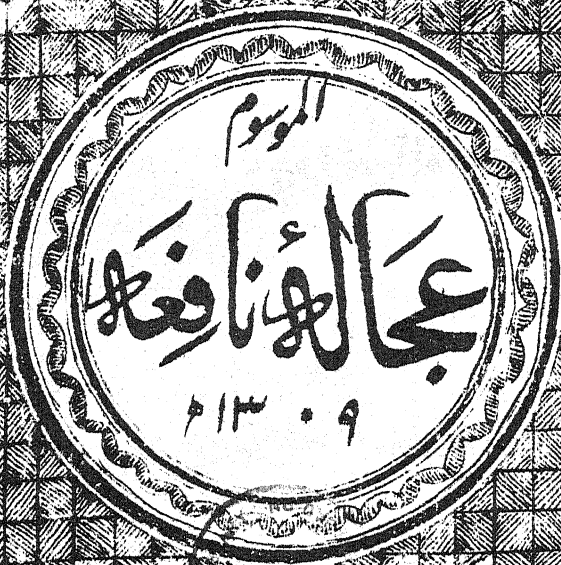 الموسوم
عجالهٔ نافعه
۱۳۰۹ھ